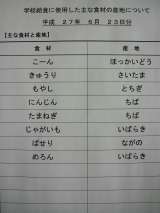 学校給食に使用した主な食材の産地について
平成 27年 6月 23日分
【主な食材と産地】
食材 産地
こーん ほっかいどう
きゅうり さいたま
もやし とちぎ
にんじん ちば
たまねぎ ちば
じゃがいも いばらき
ぱせり ながの
めろん いばらき